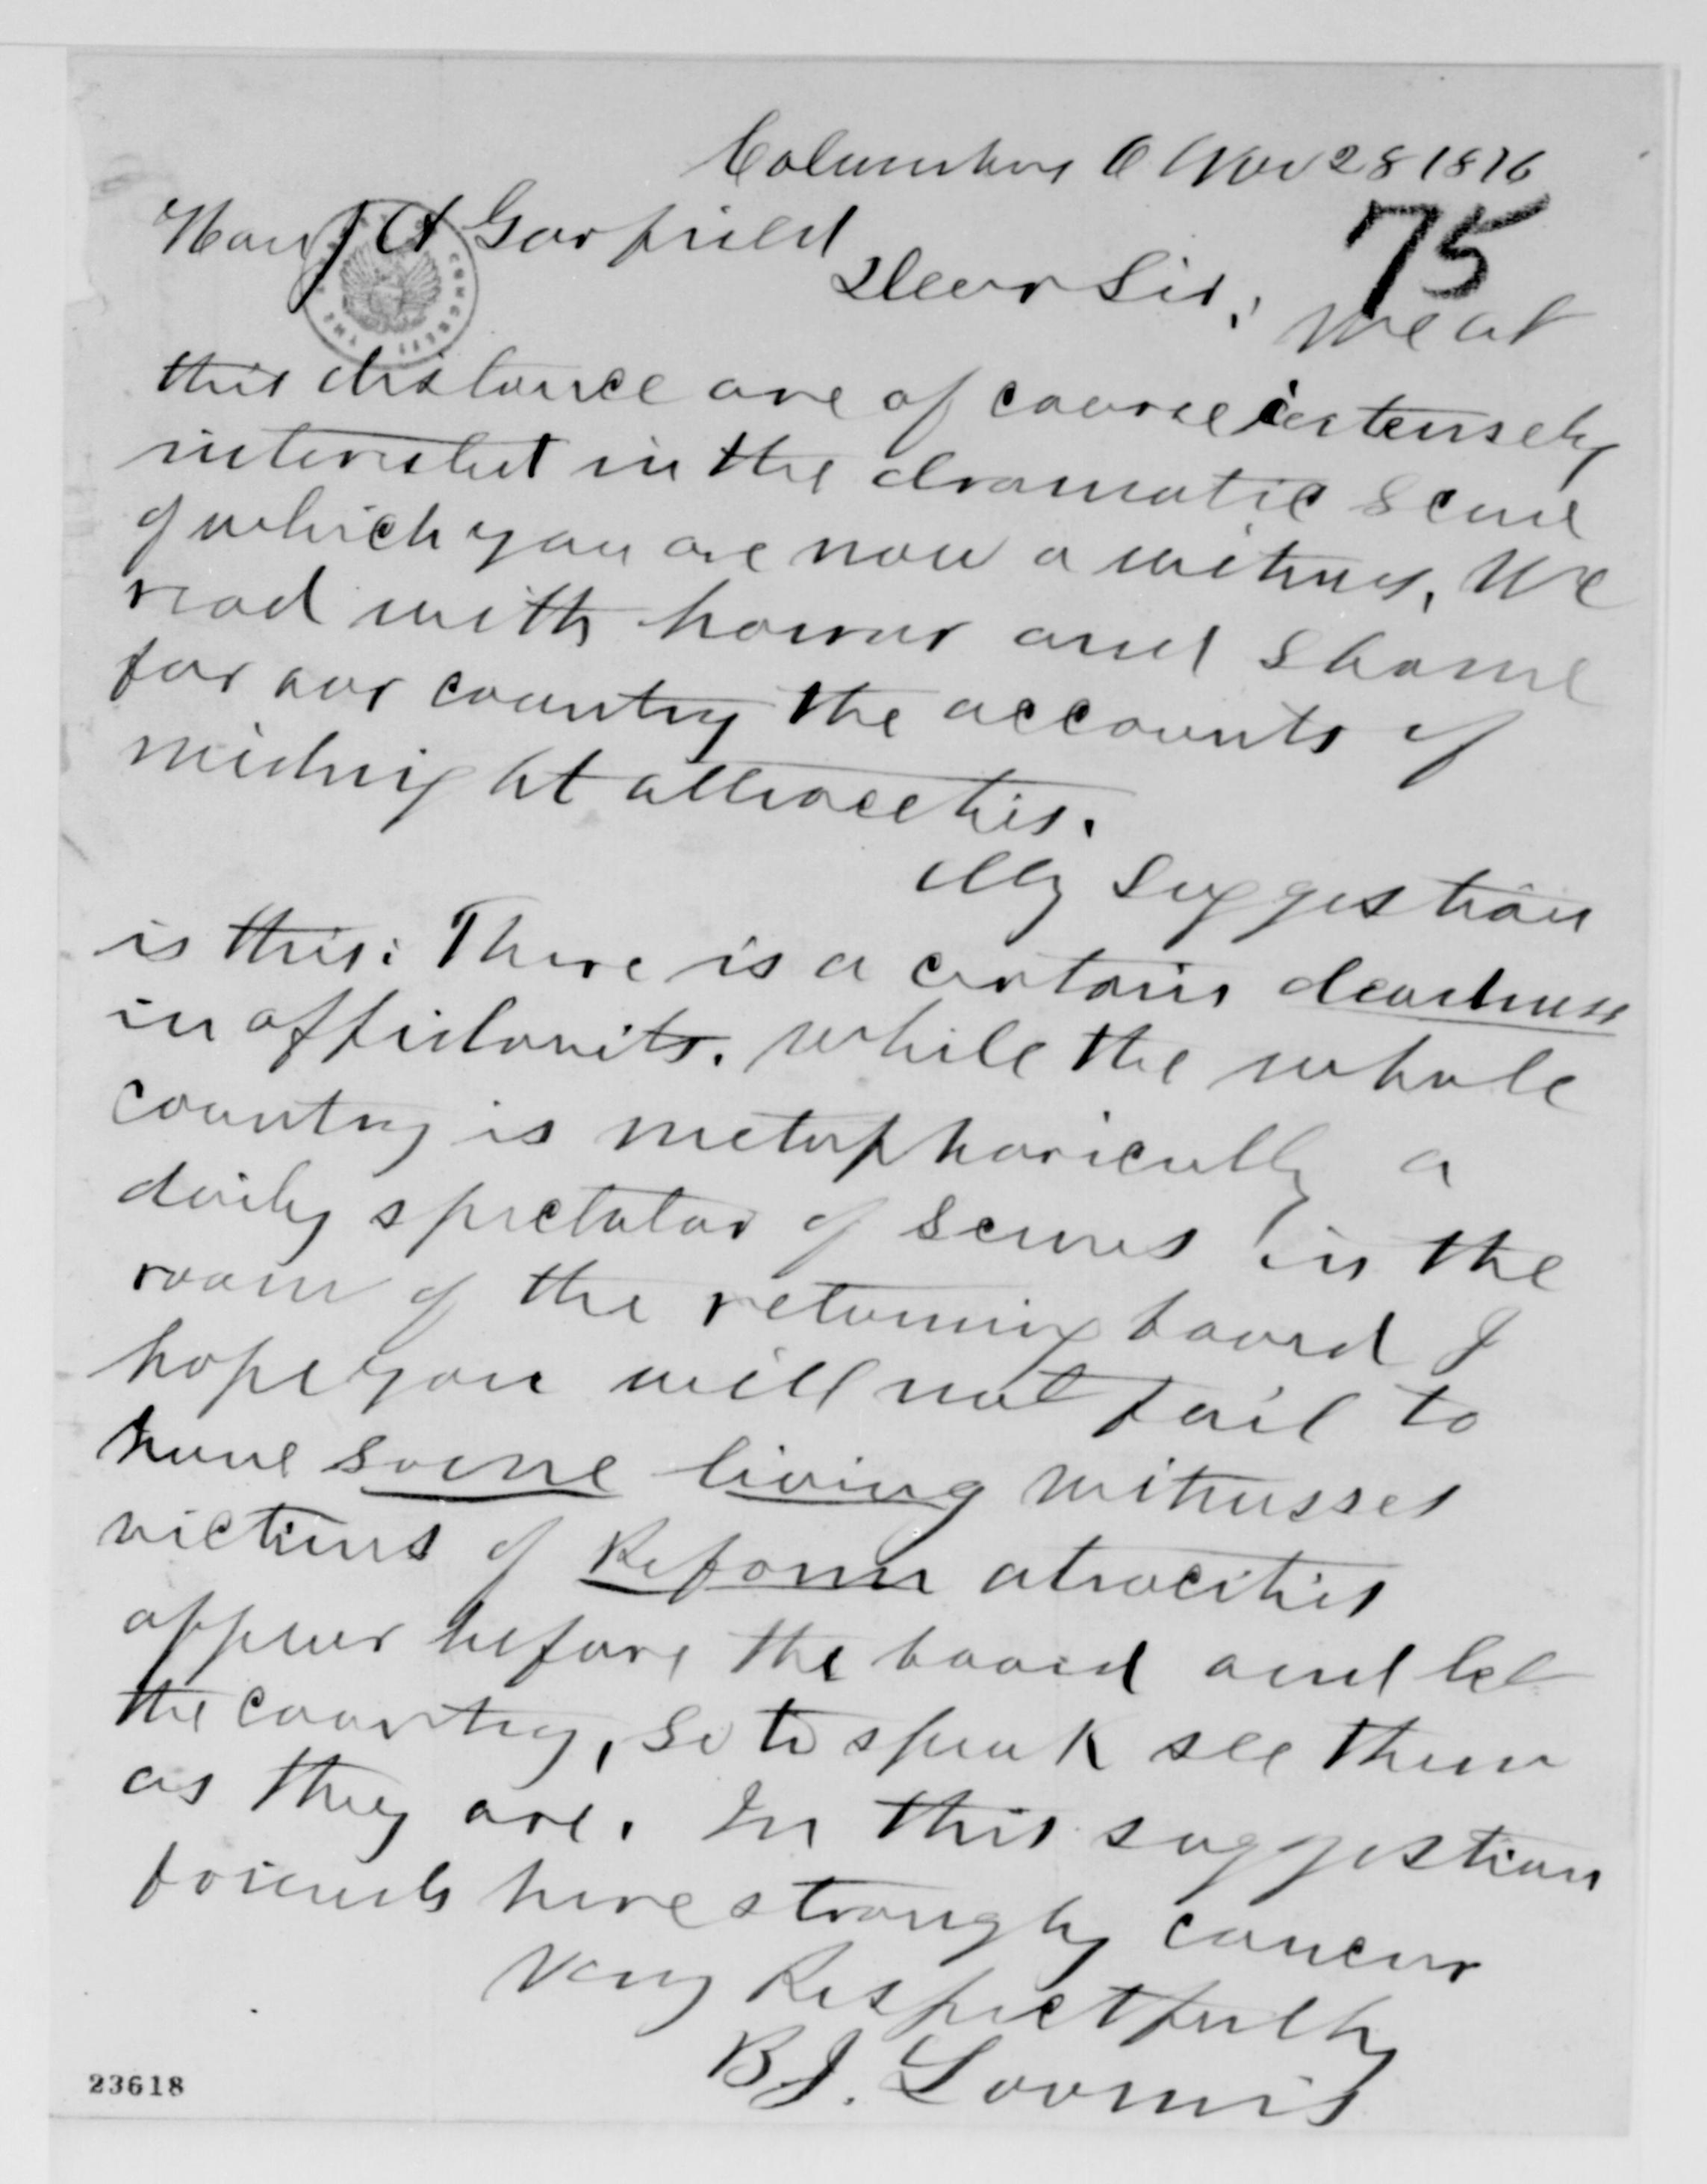 Columbus O Nov 28 1876
75
Hon J A Garfield
Dear Sir; We at
this distance are of course intensely
interested in the dramatic scene
of which you are now a witness. We
read with horror and shame
for our country the accounts of
midnight attrocities.
My suggestion
is this: There is a certain deadness
in affidavits. While the whole
country is metaphorically a
daily spectator of scenes in the
room of the returning board I
hope you will not fail to
have some living witnesses
victims of Reform atrocities
appear before the board and let
the country, so to speak see them
as they are. In this suggestion
friends here strongly concur
Very Respectfully
B J. Loomis
23618